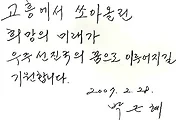 고흥에서 쏘아올린
희망의 미래가
우주 선진국의 꿈으로 이루어지길
기원합니다.
2009. 2. 28.
박근혜